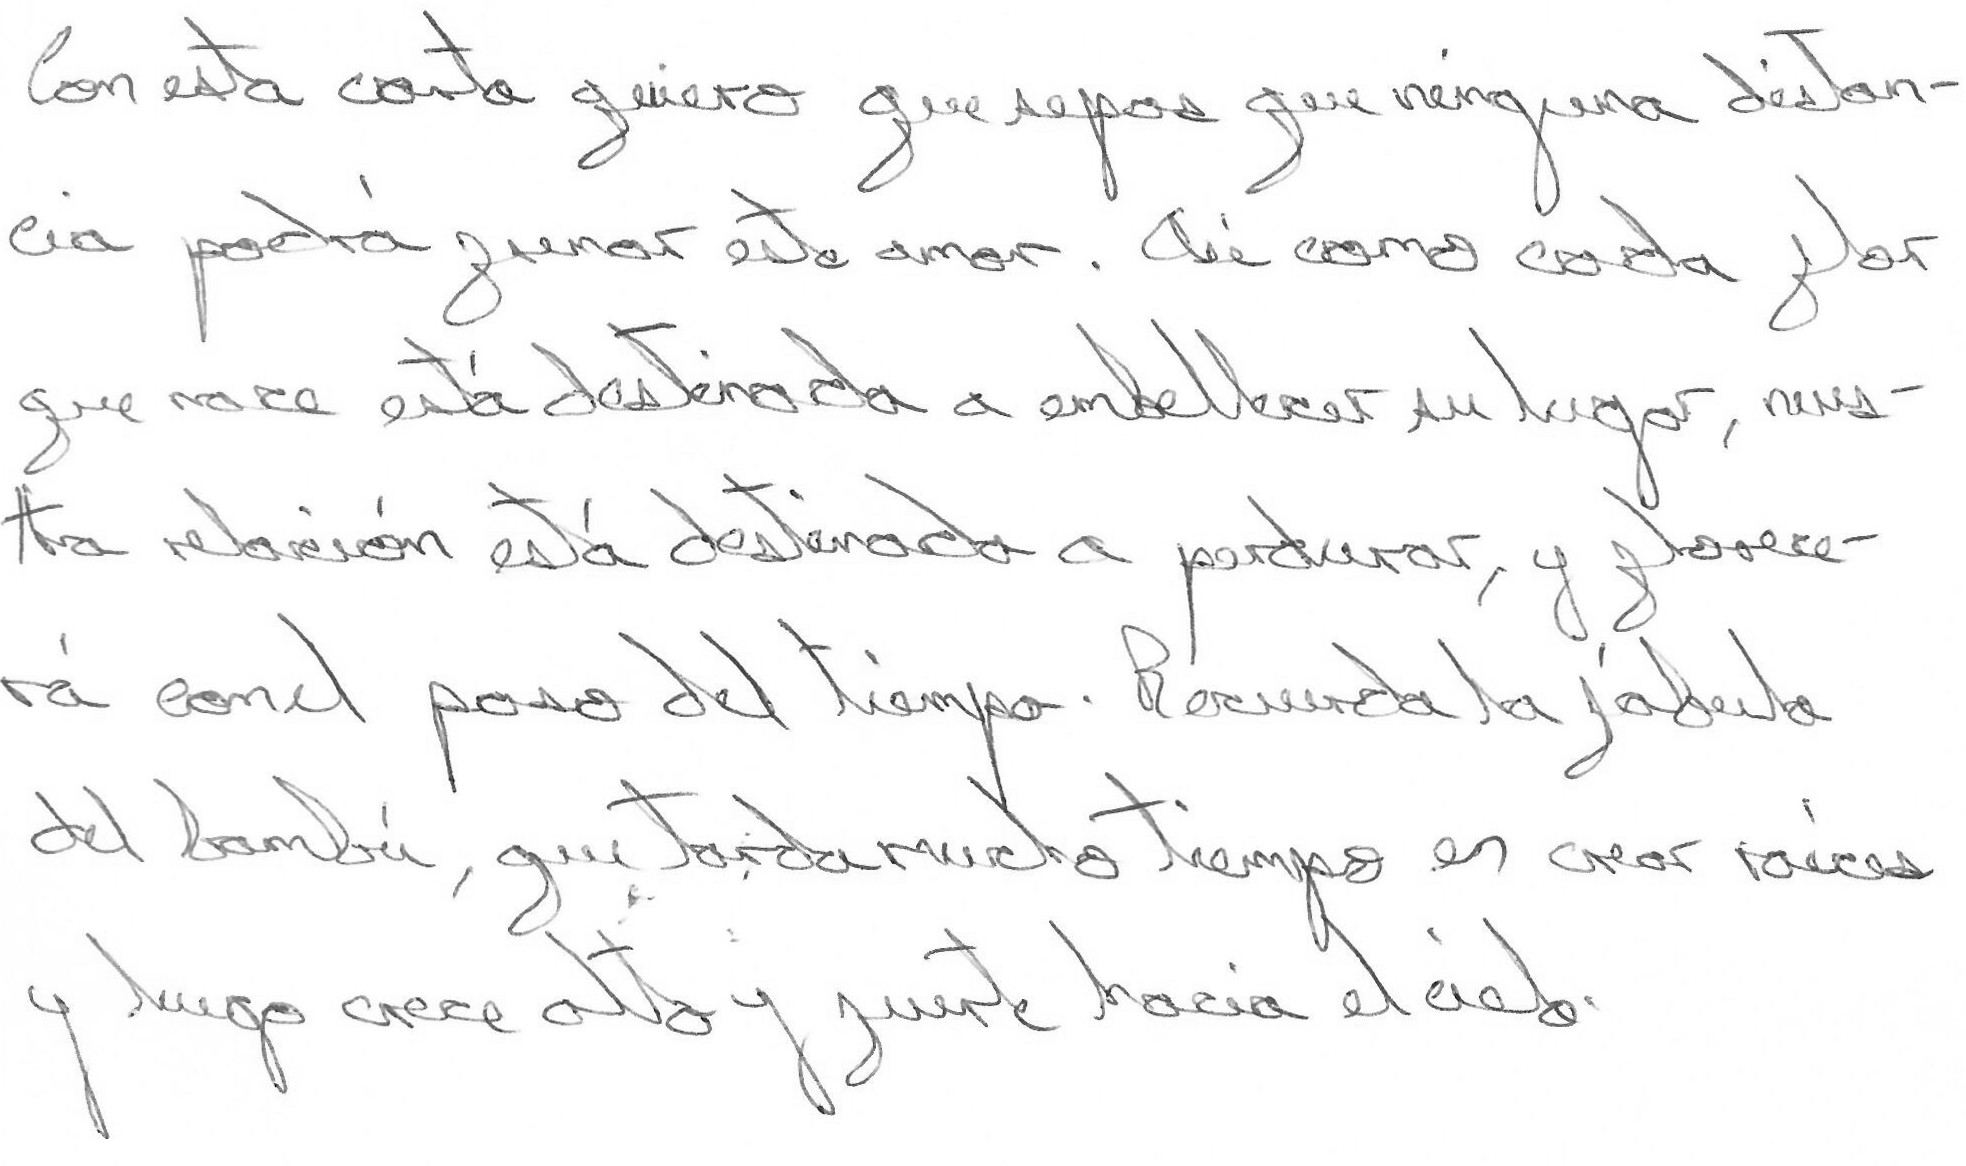 Con esta carta quiero que sepas que ninguna distan-
cia podrá frenar este amor. Así como cada flor
que nace está destinada a embellecer su lugar, nues-
tra relación está destinada a perdurar, y florece-
rá con el paso del tiempo. Recuerda la fábula
del bambú, que tarda mucho tiempo en crear raíces
y luego crece alto y fuerte hacia el cielo.